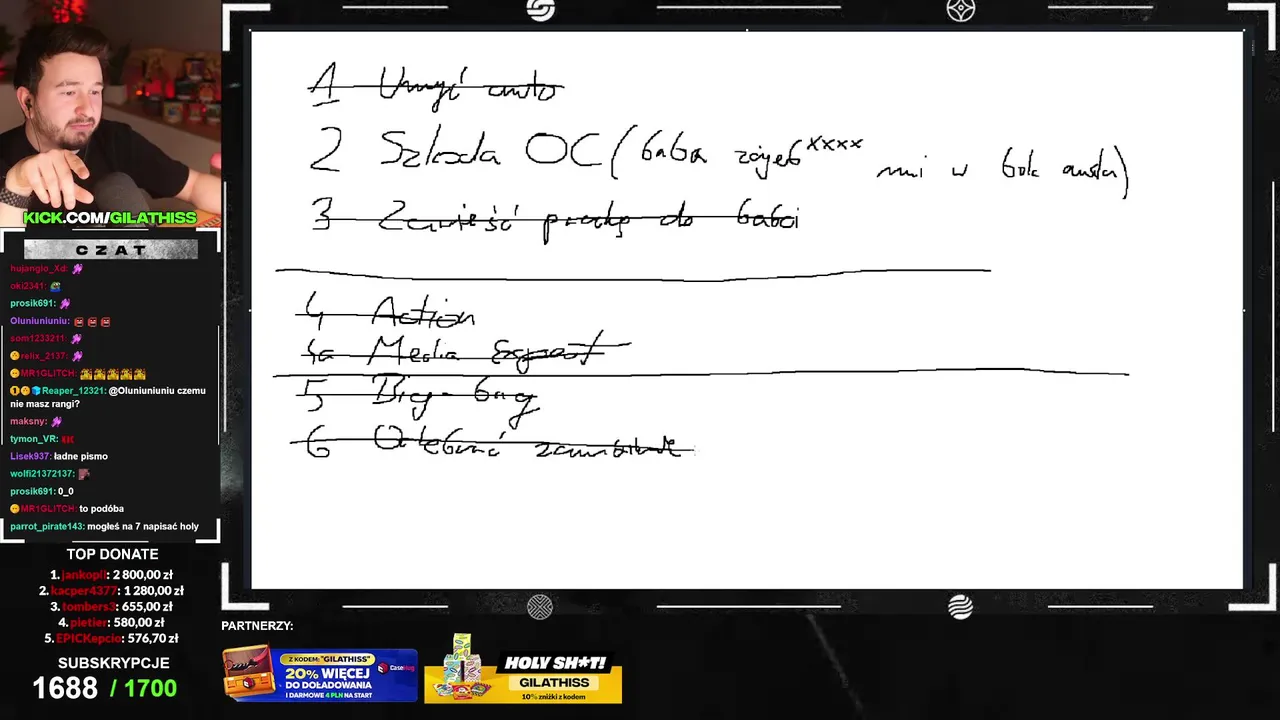 1 Umyć auto
2 Szkoda OC (baba zajebxxxx mi w bok auta)
3 Zawieść pralkę do babci
4 Action
4a Media Expert
5 Big-bag
6 Odebrać
KICK.COM/GILATHISS
CZAT
hujanglo_Xd:
oki2341:
prosik691:
Oluniuniuniu:
som1233211:
relix_2137:
MR1GLITCH:
Reaper_12321: @Oluniuniuniu czemu
nie masz rangi?
maksny:
tymon_VR:
Lisek937: ładne pismo
wolfi21372137:
prosik691: 0_0
MR1GLITCH: to podóba
parrot_pirate143: mogłeś na 7 napisać holy
TOP DONATE
1. jankopll: 2 800,00 zł
2. kacper4377: 1 280,00 zł
3. tombers3: 655,00 zł
4. pietier: 580,00 zł
5. EPICKepcio: 576,70 zł
SUBSKRYPCJE
1688 / 1700
PARTNERZY:
Z KODEM: "GILATHISS"
20% WIĘCEJ
DO DOŁADOWANIA
I DARMOWE 4 PLN NA START
CaseHug
HOLY SH*T!
GILATHISS
10% zniżki z kodem